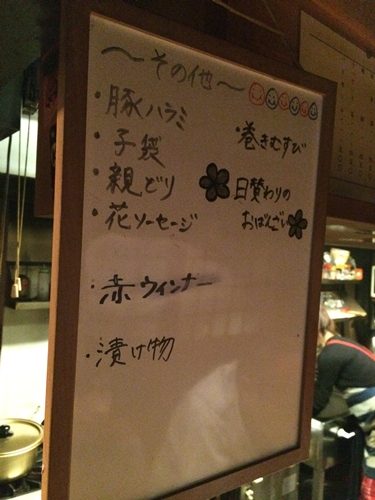 〜その他〜
・豚ハラミ
・子袋
・親どり
・花ソーセージ
・赤ウィンナー
・漬け物
・巻きむすび
日替わりの
おばんざい